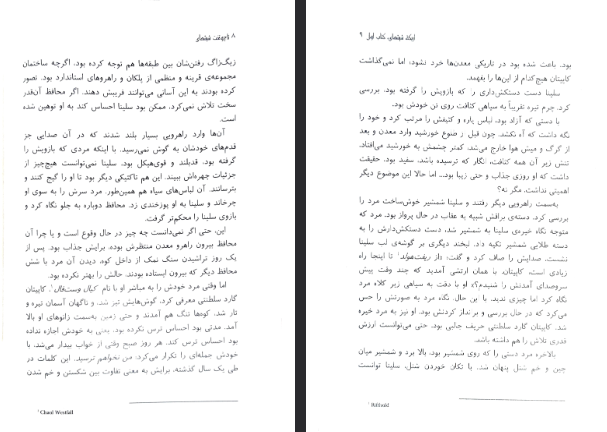 زیگ‌زاگ رفتن‌شان بین طبقه‌ها هم توجه کرده بود. اگرچه ساختمان
مجموعه‌ی قرینه و منظمی از پلکان و راهروهای استاندارد بود. تصور
کرده بودند به این آسانی می‌توانند فریبش دهند. اگر محافظ آن‌قدر
سخت تلاش نمی‌کرد، ممکن بود سلینا احساس کند به او توهین شده
است.
آن‌ها وارد راهرویی بسیار بلند شدند که در آن صدایی جز
قدم‌های خودشان به گوش نمی‌رسید. با اینکه مردی که بازویش را
گرفته بود، قدبلند و قوی‌هیکل بود، سلینا نمی‌توانست هیچ‌چیز از
جزئیات چهره‌اش ببیند. این هم تاکتیکی دیگر بود تا او را گیج کنند و
بترسانند. آن لباس‌های سیاه هم همین‌طور. مرد سرش را به سوی او
چرخاند و سلینا به او پوزخندی زد. محافظ دوباره به جلو نگاه کرد و
بازوی سلینا را محکم‌تر گرفت.
این، حتی اگر نمی‌دانست چه چیز در حال وقوع است و یا چرا آن
محافظ بیرون راهرو معدن منتظرش بوده، برایش جذاب بود. پس از
یک روز تراشیدن سنگ نمک از داخل کوه، دیدن آن مرد با شش
محافظ دیگر که بیرون ایستاده بودند، حالش را بهتر نکرده بود.
اما وقتی مرد خودش را به مباشر او با نام کیال وست‌فال¹، کاپیتان
گارد سلطنتی معرفی کرد، گوش‌هایش تیز شد. و ناگهان آسمان تیره و
تار شد، کوه‌ها تنگ هم آمدند و حتی زمین به‌سمت زانوهای او بالا
آمد. مدتی بود احساس ترس نکرده بود، یعنی به خودش اجازه نداده
بود احساس ترس کند. هر روز صبح وقتی از خواب بیدار می‌شد، با
خودش جمله‌ای را تکرار می‌کرد: من نخواهم ترسید. این کلمات در
طی یک سال گذشته، برایش به معنی تفاوت بین شکستن و خم شدن
¹ Chaol Westfall
۹
بود. باعث شده بود در تاریکی معدن‌ها خرد نشود؛ اما نمی‌گذاشت
کاپیتان هیچ‌کدام از این‌ها را بفهمد.
سلینا دست دستکش‌داری را که بازویش را گرفته بود، بررسی
کرد. چرم تیره تقریباً به سیاهی کثافت روی تن خودش بود.
با دستی که آزاد بود، لباس پاره و کثیفش را مرتب کرد و خود را
نگه داشت که آه نکشد. چون قبل از طلوع خورشید وارد معدن و بعد
از گرگ و میش هوا خارج می‌شد، کمتر چشمش به خورشید می‌افتاد.
تنش زیر آن همه کثافت، انگار که ترسیده باشد، سفید بود. حقیقت
داشت که او روزی جذاب و حتی زیبا بود... اما حالا این موضوع دیگر
اهمیتی نداشت. مگر نه؟
به‌سمت راهرویی دیگر رفتند و سلینا شمشیر خوش‌ساخت مرد را
بررسی کرد. دسته‌ی براقش شبیه به عقاب در حال پرواز بود. مرد که
متوجه نگاه خیره‌ی سلینا به شمشیر شد، دست دستکش‌دارش را به
دسته طلایی شمشیر تکیه داد. لبخند دیگری بر گوشه‌ی لب سلینا
نشست. صدایش را صاف کرد و گفت: «از ریفت‌هولد¹ تا اینجا راه
زیادی است، کاپیتان، با همان ارتشی آمدید که چند وقت پیش
سروصدای آمدنش را شنیدم؟» او با دقت به سیاهی زیر کلاه مرد
نگاه کرد اما چیزی ندید. با این حال، نگاه مرد به صورتش را حس
می‌کرد که در حال بررسی و بر انداز کردنش بود. او نیز به مرد خیره
شد. کاپیتان گارد سلطنتی حریف جالبی بود. حتی می‌توانست ارزش
قدری تلاش را هم داشته باشد.
بالاخره مرد دستی را که روی شمشیر بود، بالا برد و شمشیر میان
چین و خم شنل پنهان شد. با تکان خوردن شنل، سلینا توانست